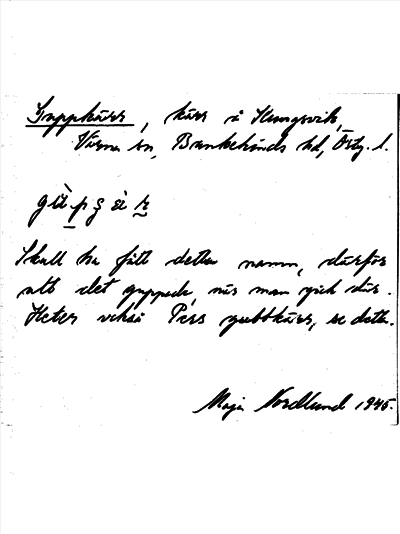 Guppkärr, kärr i Kungsvik,
Värna sn, Bankekinds hd, Östg. l.
Skall ha fått detta namn, därför
att det guppade, när man gick där.
Heter också Pers gubbkärr, se detta.
Maja Nordlund 1945.